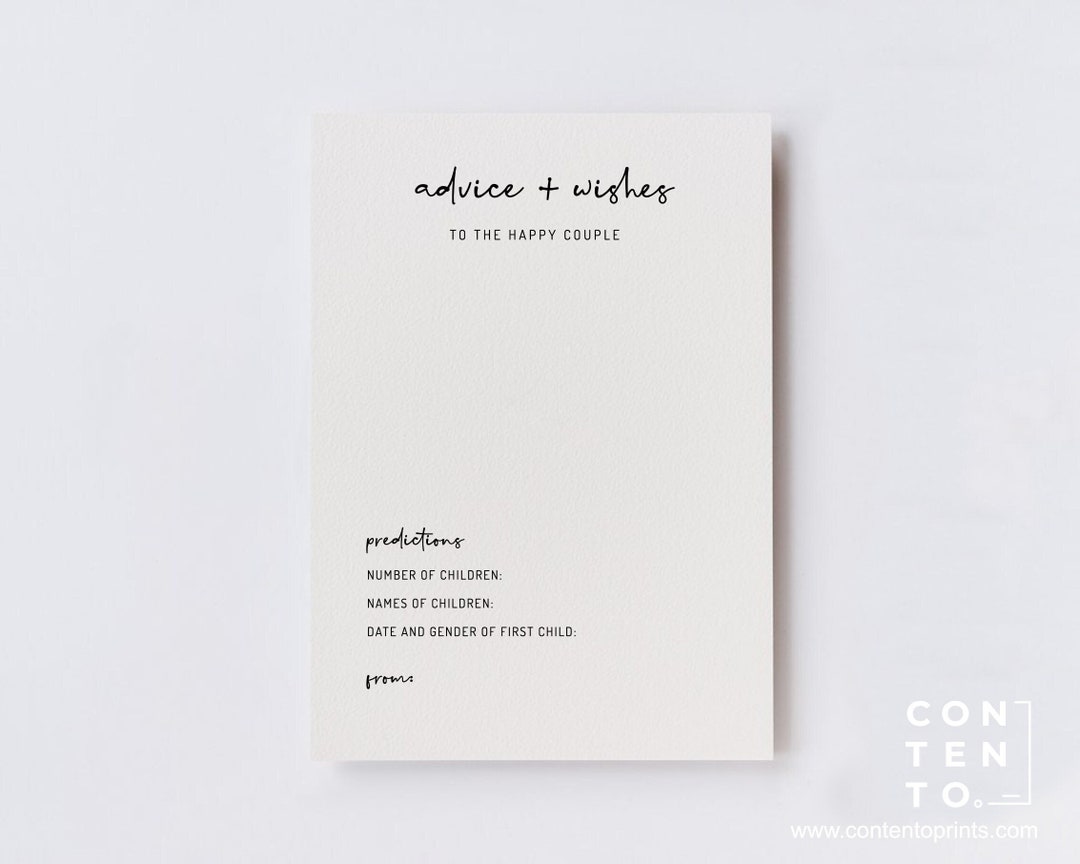 advice + wishes
TO THE HAPPY COUPLE
predictions
NUMBER OF CHILDREN:
NAMES OF CHILDREN:
DATE AND GENDER OF FIRST CHILD:
from:
CON
TEN
TO.
www.contentoprints.com